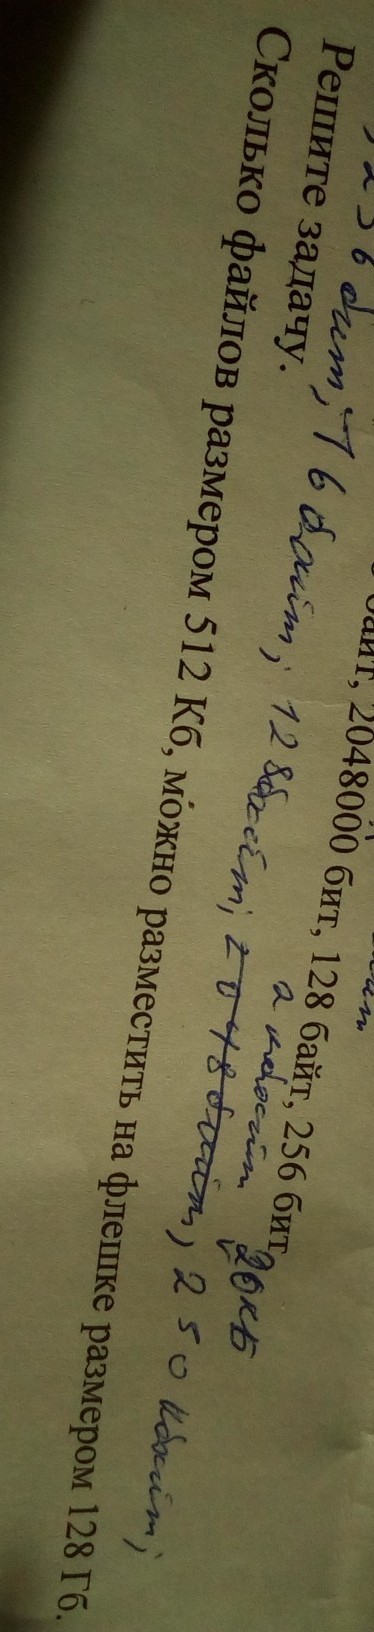 байт, 2048000 бит, 128 байт, 256 бит
256 бит, 16 байт, 128 байт, 2048 байт, 250 кбайт,
2 кбайт 20 кБ
Решите задачу.
Сколько файлов размером 512 Кб, можно разместить на флешке размером 128 Гб.